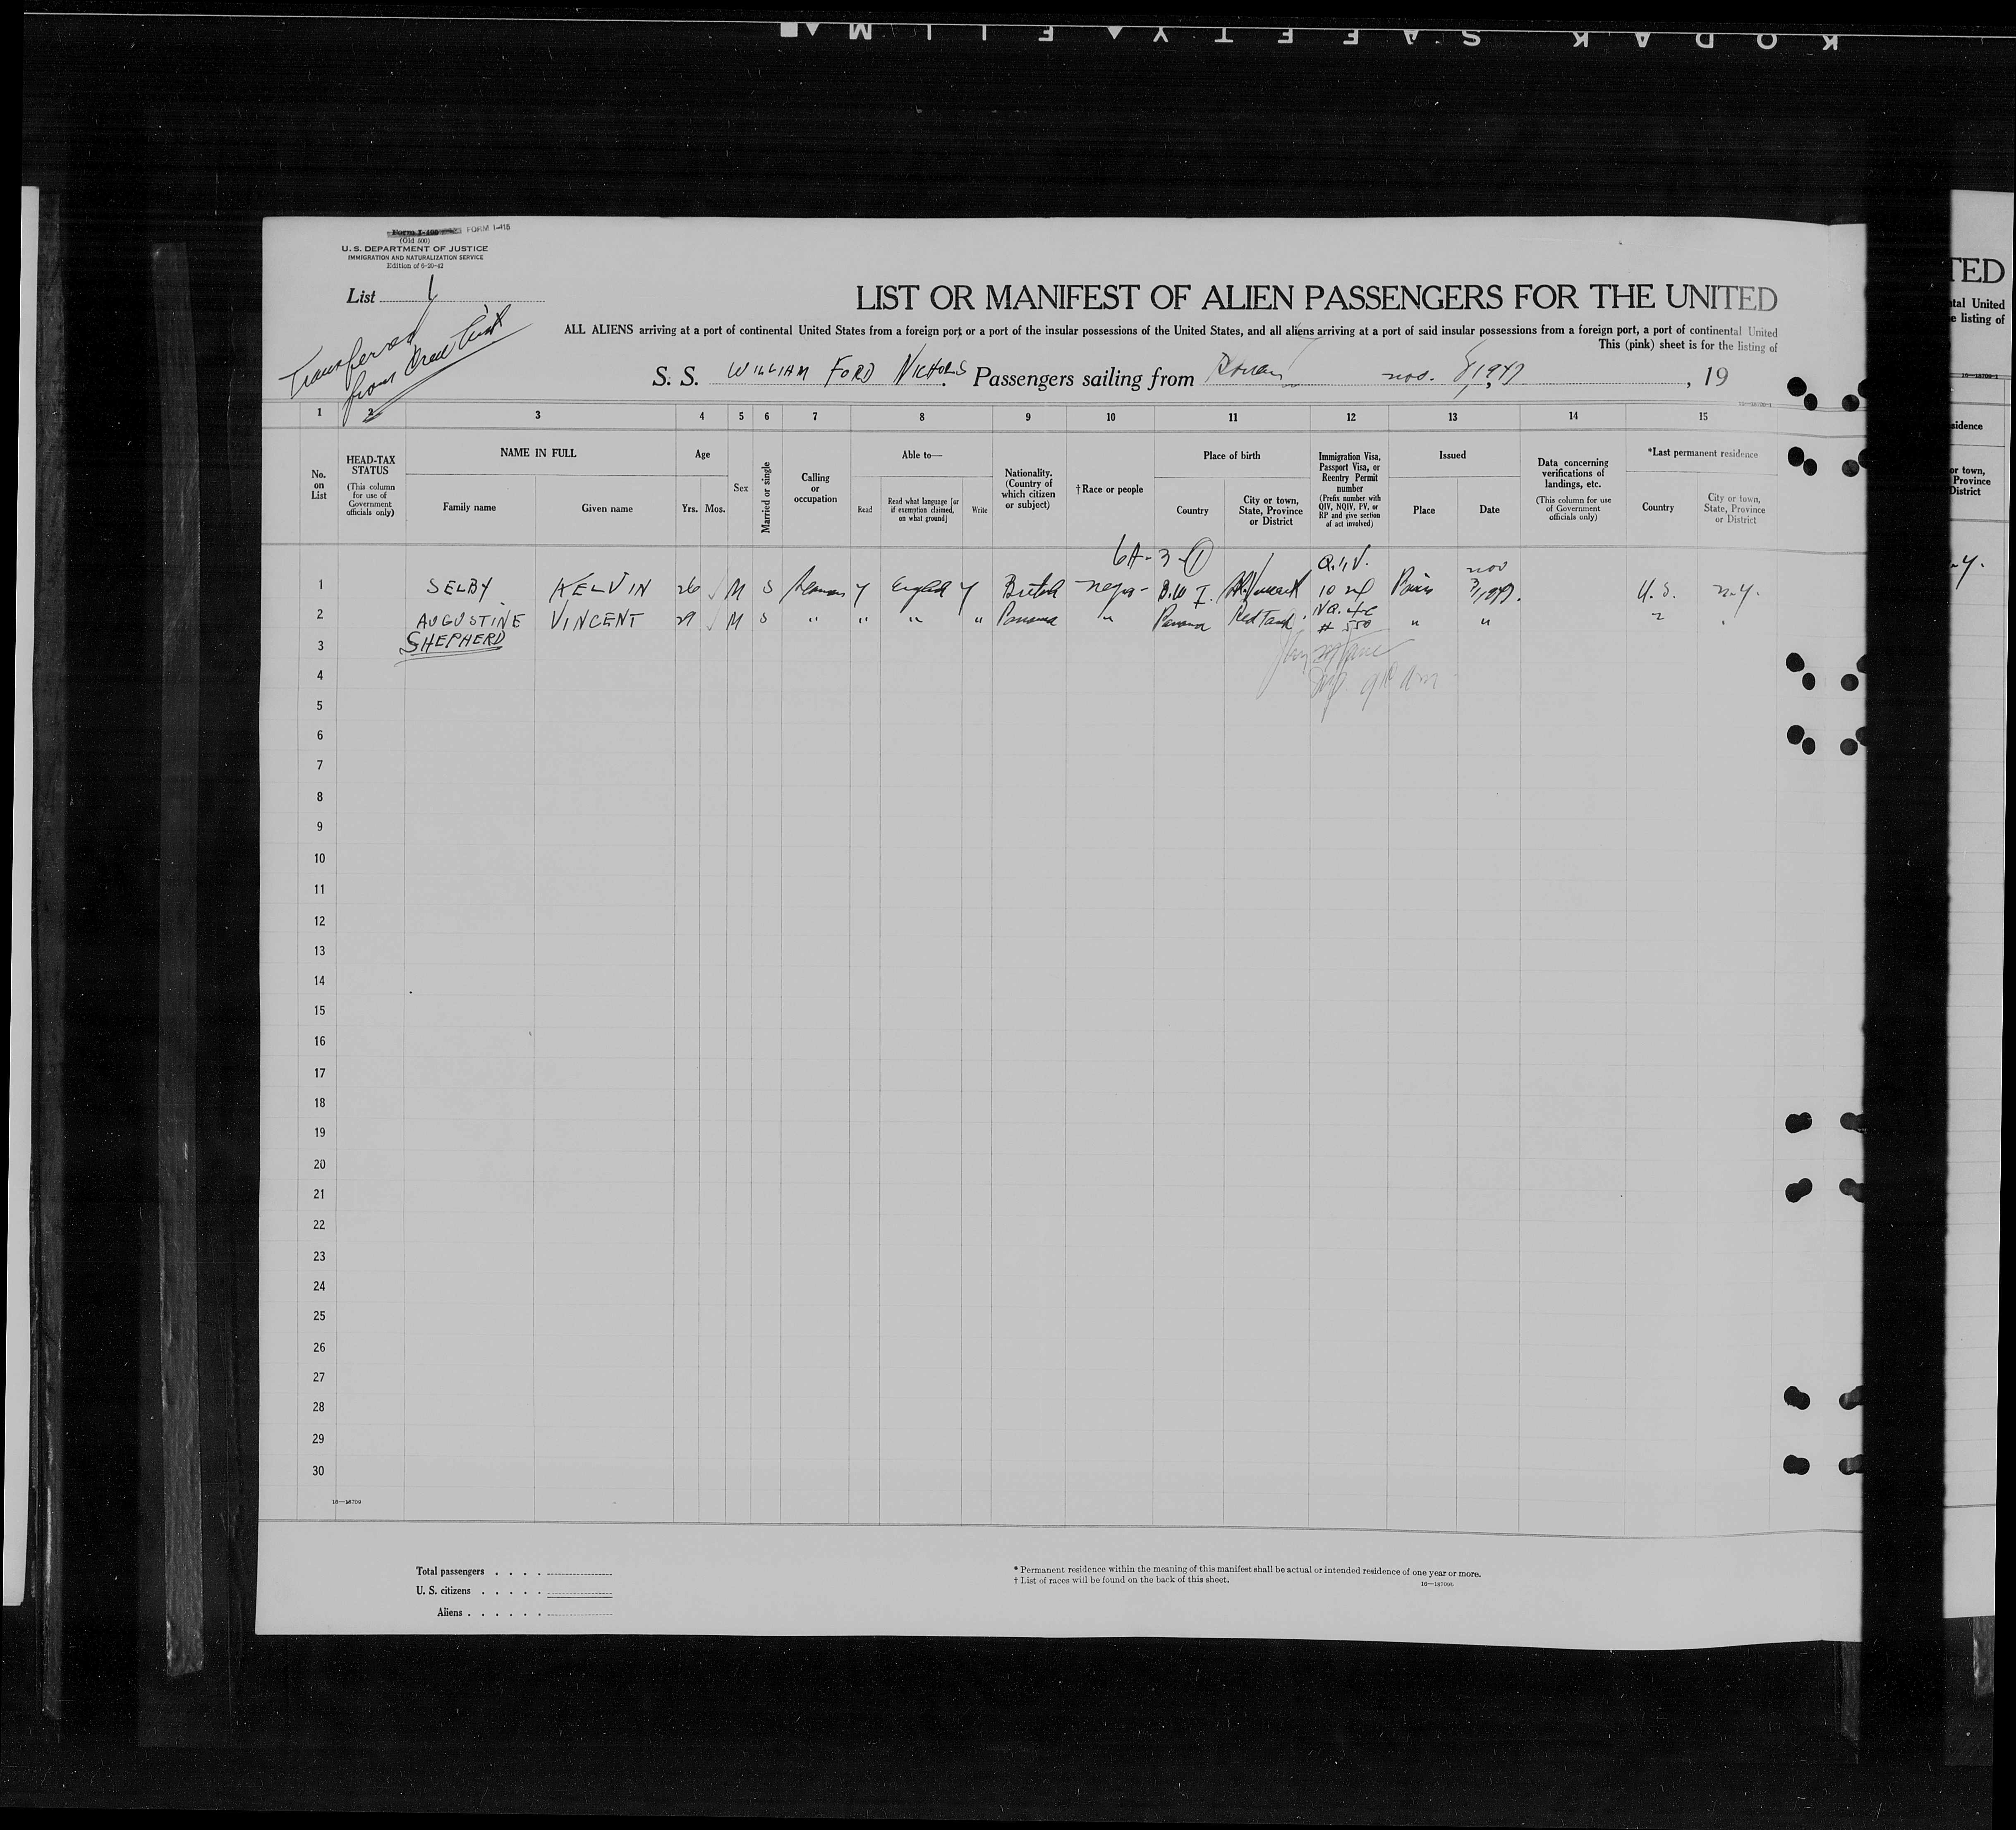 KODAK SAFETY FILM
Form I-466 FORM I-418
(Old 500)
U. S. DEPARTMENT OF JUSTICE
IMMIGRATION AND NATURALIZATION SERVICE
Edition of 6-20-42
List 1
Transferred
from Crew List
LIST OR MANIFEST OF ALIEN PASSENGERS FOR THE UNITED
ALL ALIENS arriving at a port of continental United States from a foreign port or a port of the insular possessions of the United States, and all aliens arriving at a port of said insular possessions from a foreign port, a port of continental United
This (pink) sheet is for the listing of
S. S. WILLIAM FORD NICHOLS Passengers sailing from Rouen Nov. 8, 1947, 19
1 2 3 4 5 6 7 8 9 10 11 12 13 14 15
No. on List
HEAD-TAX STATUS
(This column for use of Government officials only)
NAME IN FULL
Family name Given name
Age
Yrs. Mos.
Sex
Married or single
Calling or occupation
Able to—
Read Read what language [or if exemption claimed, on what ground] Write
Nationality. (Country of which citizen or subject)
†Race or people
Place of birth
Country City or town, State, Province or District
Immigration Visa, Passport Visa, or Reentry Permit number
(Prefix number with QIV, NQIV, PV, or RP and give section of act involved)
Issued
Place Date
Data concerning verifications of landings, etc.
(This column for use of Government officials only)
*Last permanent residence
Country City or town, State, Province or District
6A-3-1 Q.I.V. Nov
1 SELBY KELVIN 26 M S Seaman Y English Y British Negro B.W.I. Paris 7, 1947. U.S. N.Y.
2 AUGUSTINE VINCENT 29 M S " " " " Panama " Panama Red Tank N.Q. 4c # 550 " "
SHEPHERD
3
4
5
6
7
8
9
10
11
12
13
14
15
16
17
18
19
20
21
22
23
24
25
26
27
28
29
30
16—18709
Total passengers
U. S. citizens
Aliens
* Permanent residence within the meaning of this manifest shall be actual or intended residence of one year or more.
† List of races will be found on the back of this sheet.
TED
tal United
e listing of
sidence
or town,
Province
District